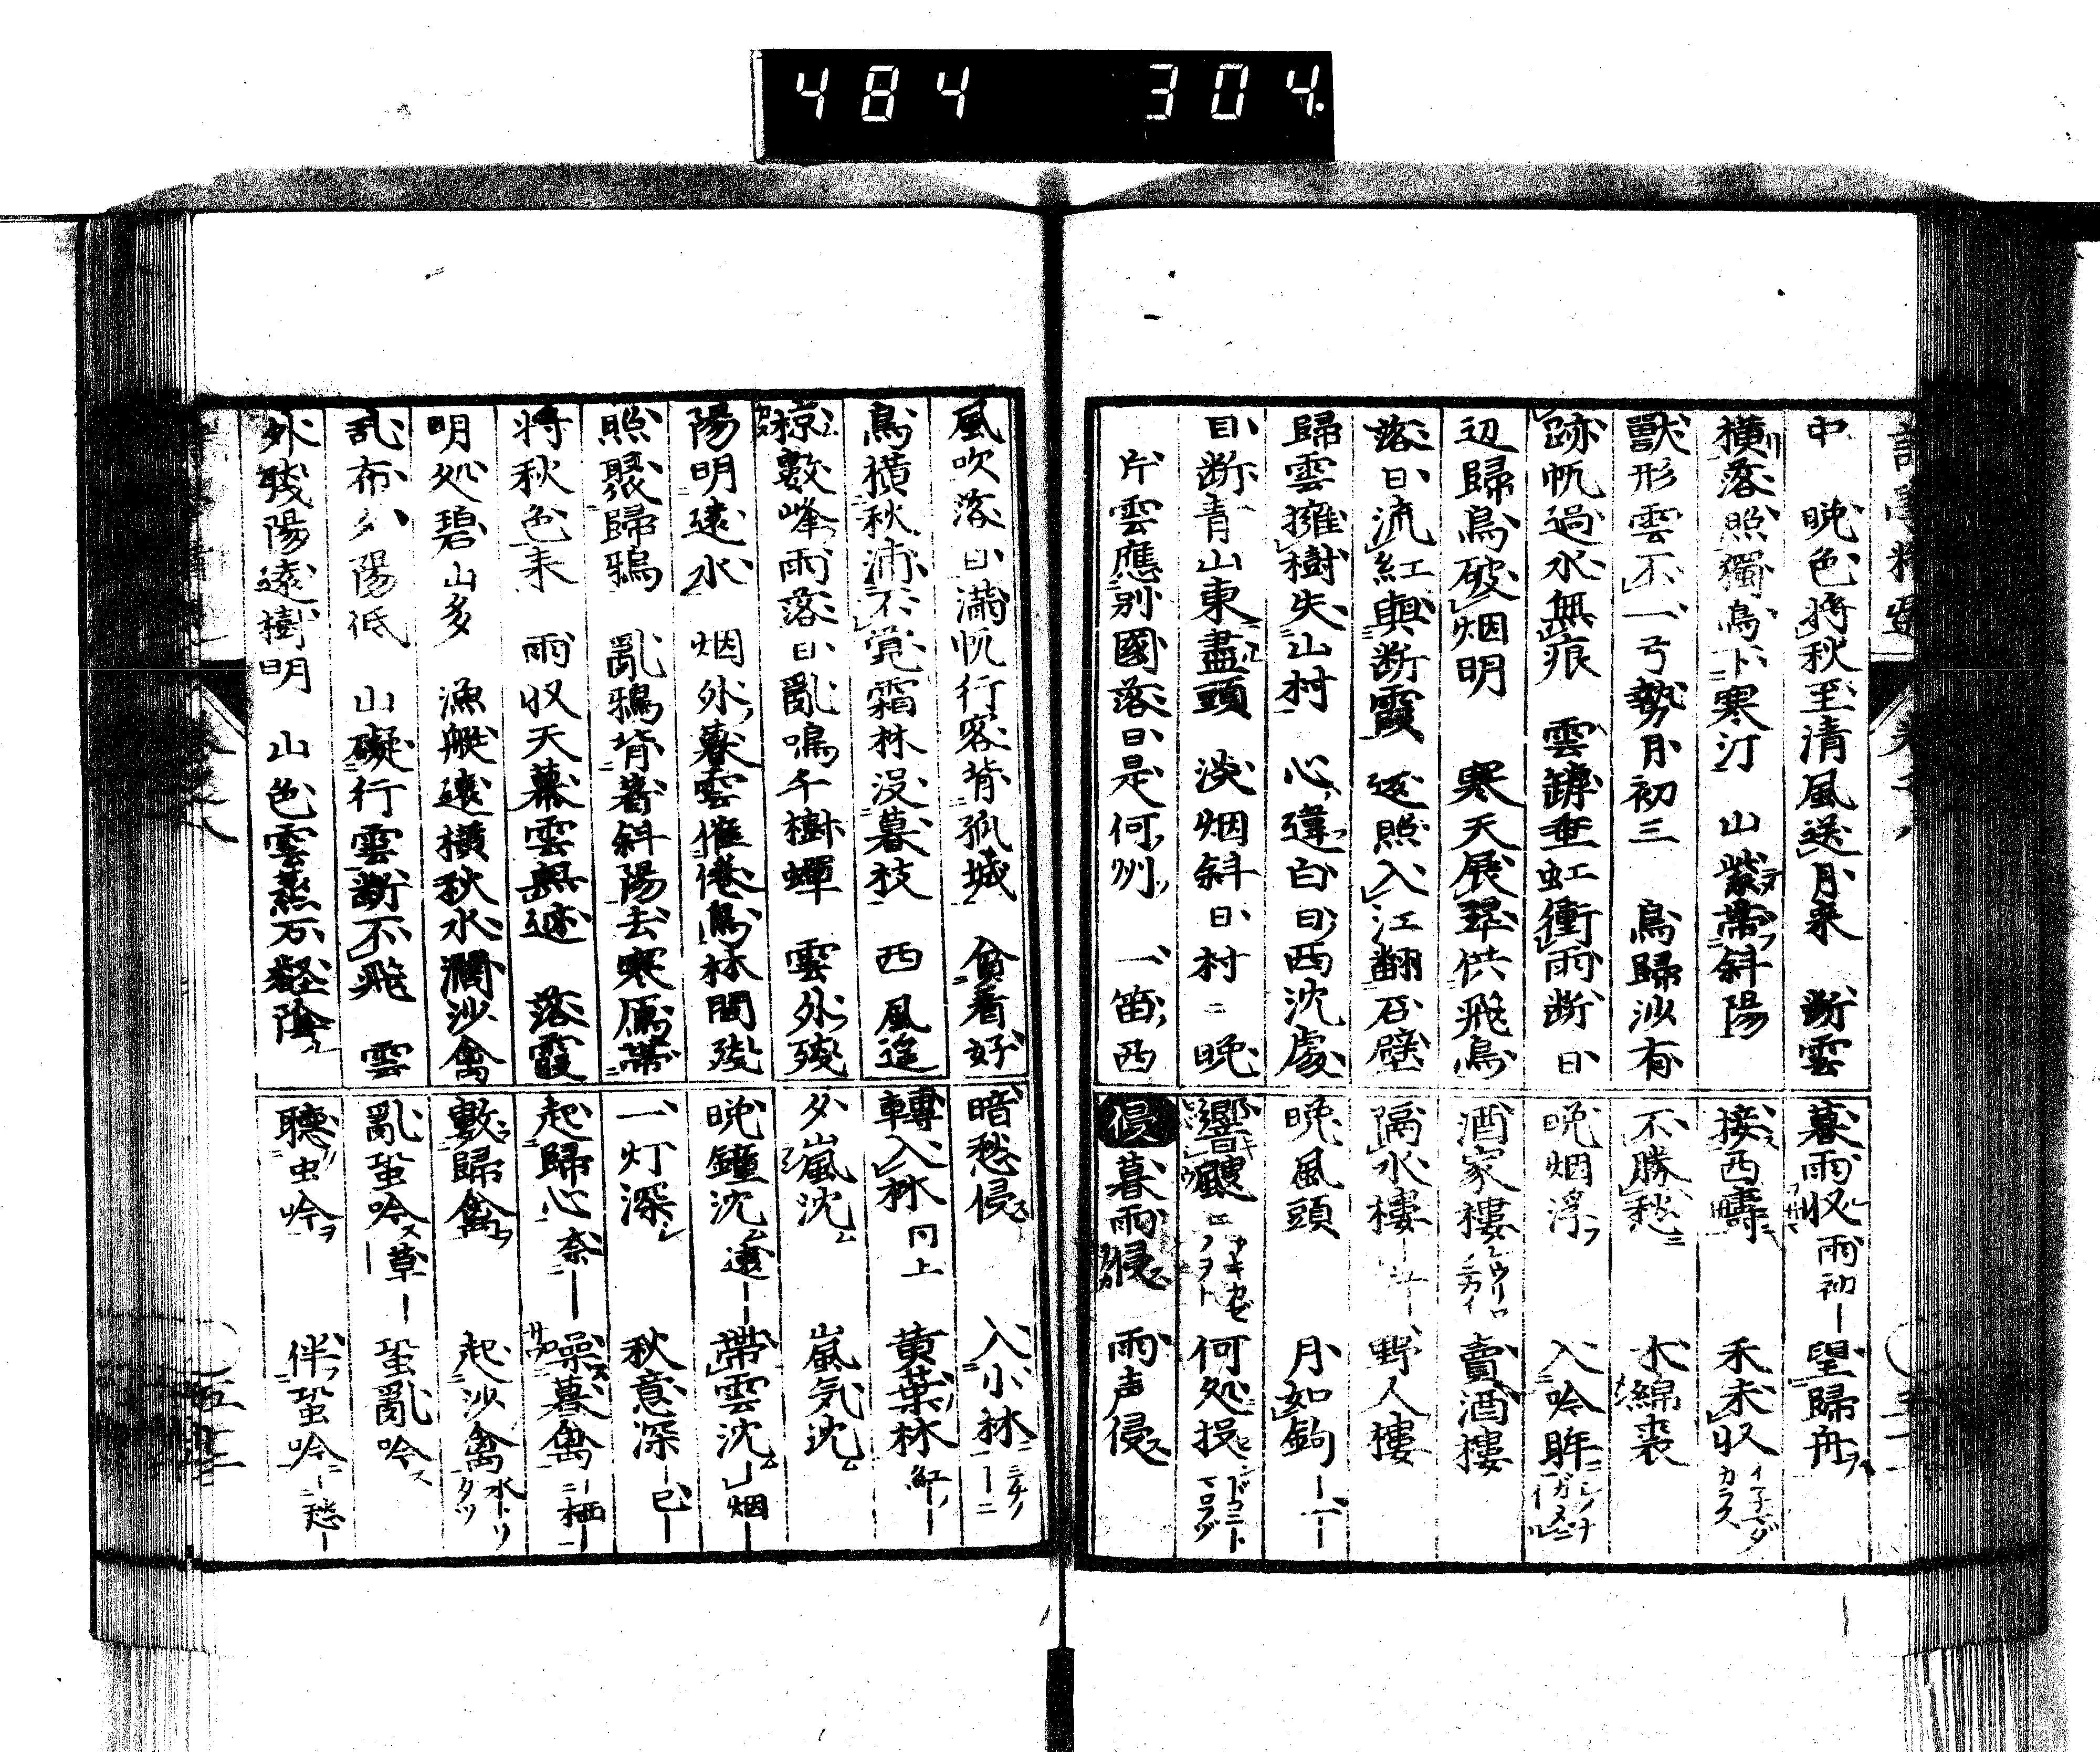 484 304
中 晩色将秋至清風送月来 断雲
横落照獨鳥下寒汀 山紫帯斜陽
獸形雲不一弓勢月初三 鳥歸沙有
跡帆過水無痕 雲罅垂虹衝雨断日
辺歸鳥破烟明 寒天展翠供飛鳥
落日流紅與断霞 返照入江翻石壁
歸雲擁樹失山村 心違白日西沈處
目断青山東盡頭 淡烟斜日村 晩
片雲應別國落日是何州 一笛西
暮雨収 雨初 望歸舟
接西疇 禾未収
不勝愁 木綿裘
晩烟浮 入吟眸
酒家樓 賣酒樓
隔水樓 野人樓
晩風頭 月如鉤
響颼 何処投
侵 暮雨侵 雨声侵
風吹落日満帆行客背孤城 貪看好
鳥横秋浦不覚霜林没暮枝 西風邅
掠數峰雨落日亂鳴千樹蟬 雲外残
陽明遠水 烟外暮雲催倦鳥林間残
照聚歸鴉 亂鴉背著斜陽去寒原帯
将秋色来 雨収天幕雲無迹 落霞
明処碧山多 漁艇遠横秋水濶沙禽
乱布夕陽低 山礙行雲断不飛 雲
外残陽遠樹明 山色雲蒸石墢陰
暗愁侵 入小林
轉入林 同上 黄葉林
夕嵐沈 嵐気沈
晩鐘沈 遠 帯雲沈 烟
一灯深 秋意深
起歸心 奈 噪暮禽 栖
數歸禽 起沙禽
亂蛩吟 草 蛩亂吟
聴虫吟 伴蛩吟 愁